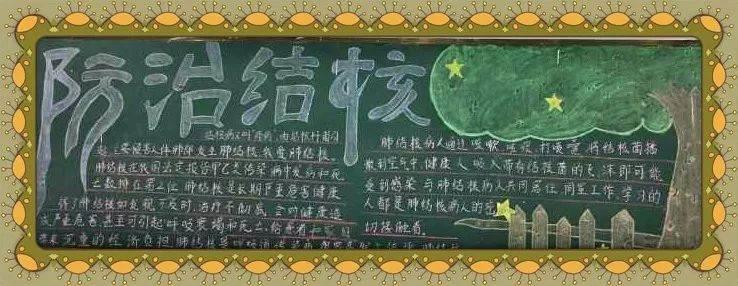 防治结核
结核病又叫痨病,由结核杆菌引
起,主要侵害人体肺部发生肺结核,我爱肺结核
肺结核在我国法定报告甲乙类传染病中发病和死
亡数排在第二位,肺结核是长期严重危害健康
得了肺结核如发现不及时,治疗不彻底,会对健康造
成严重危害,甚至可引起呼吸衰竭和死亡,给患者和家庭
带来沉重的经济负担
肺结核病人通过咳嗽、咳痰、打喷嚏,将结核菌播
散到空气中,健康人吸入带有结核菌的飞沫即可能
受到感染,与肺结核病人共同居住,同室工作、学习的
人都是肺结核病人的密
切接触者。